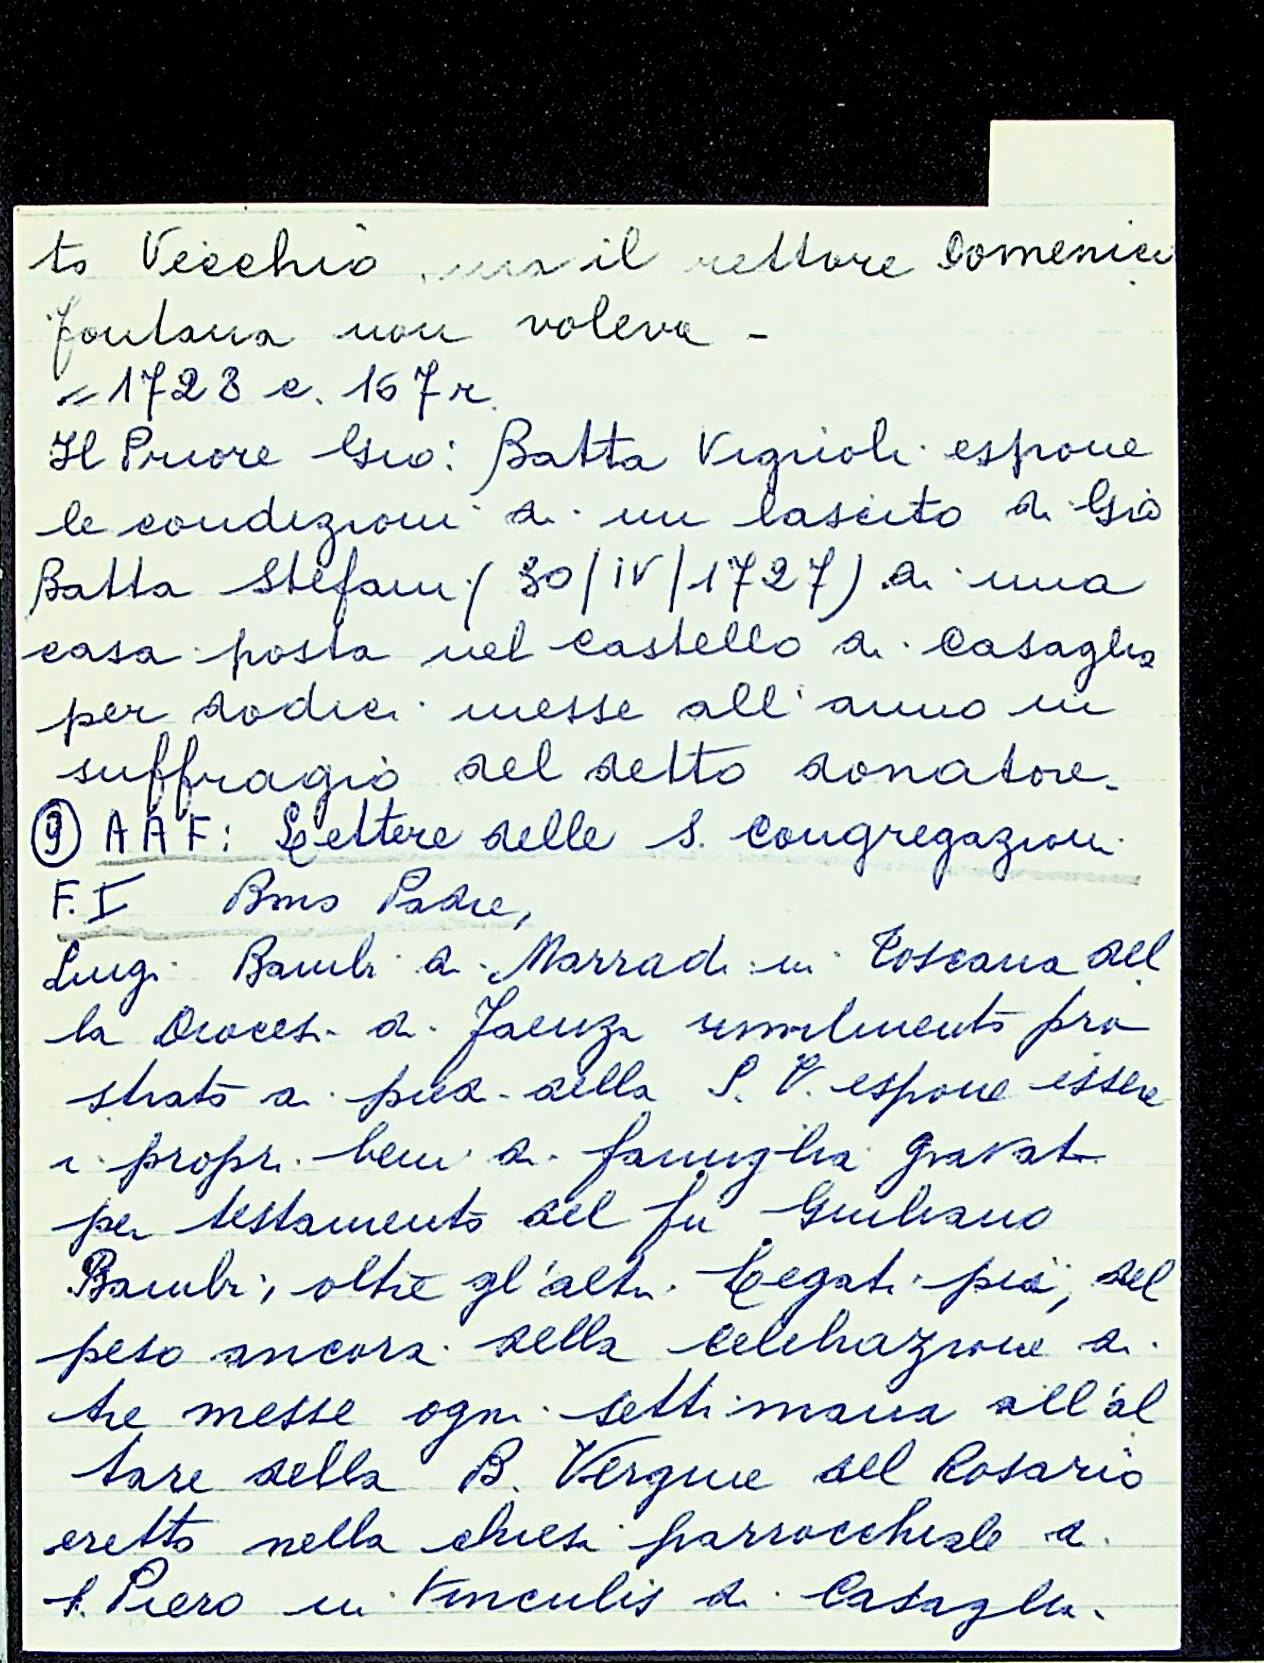 to Vecchio, ma il rettore Domenico
Fontana non voleva -
= 1728 c. 167 r.
Il Priore Gio: Batta Vignioli espone
le condizioni di un lascito di Gio
Batta Stefani (30/IV/1727) di una
casa posta nel castello di Casaglia
per dodici messe all'anno in
suffragio del detto donatore.
9 A A F: Lettere delle S. Congregazioni
F. I Bmo Padre,
Luigi Bambi di Marradi in Toscana del
la Diocesi di Faenza umilmente pro
strato ai piedi della S. V. espone essere
i propri beni di famiglia gravati
per testamento del fu Giuliano
Bambi, oltre gl'altri Legati pii, del
peso ancora della celebrazione di
tre messe ogni settimana all'al
tare della B. Vergine del Rosario
eretto nella chiesa parrocchiale di
S. Piero in Vinculis di Casaglia.